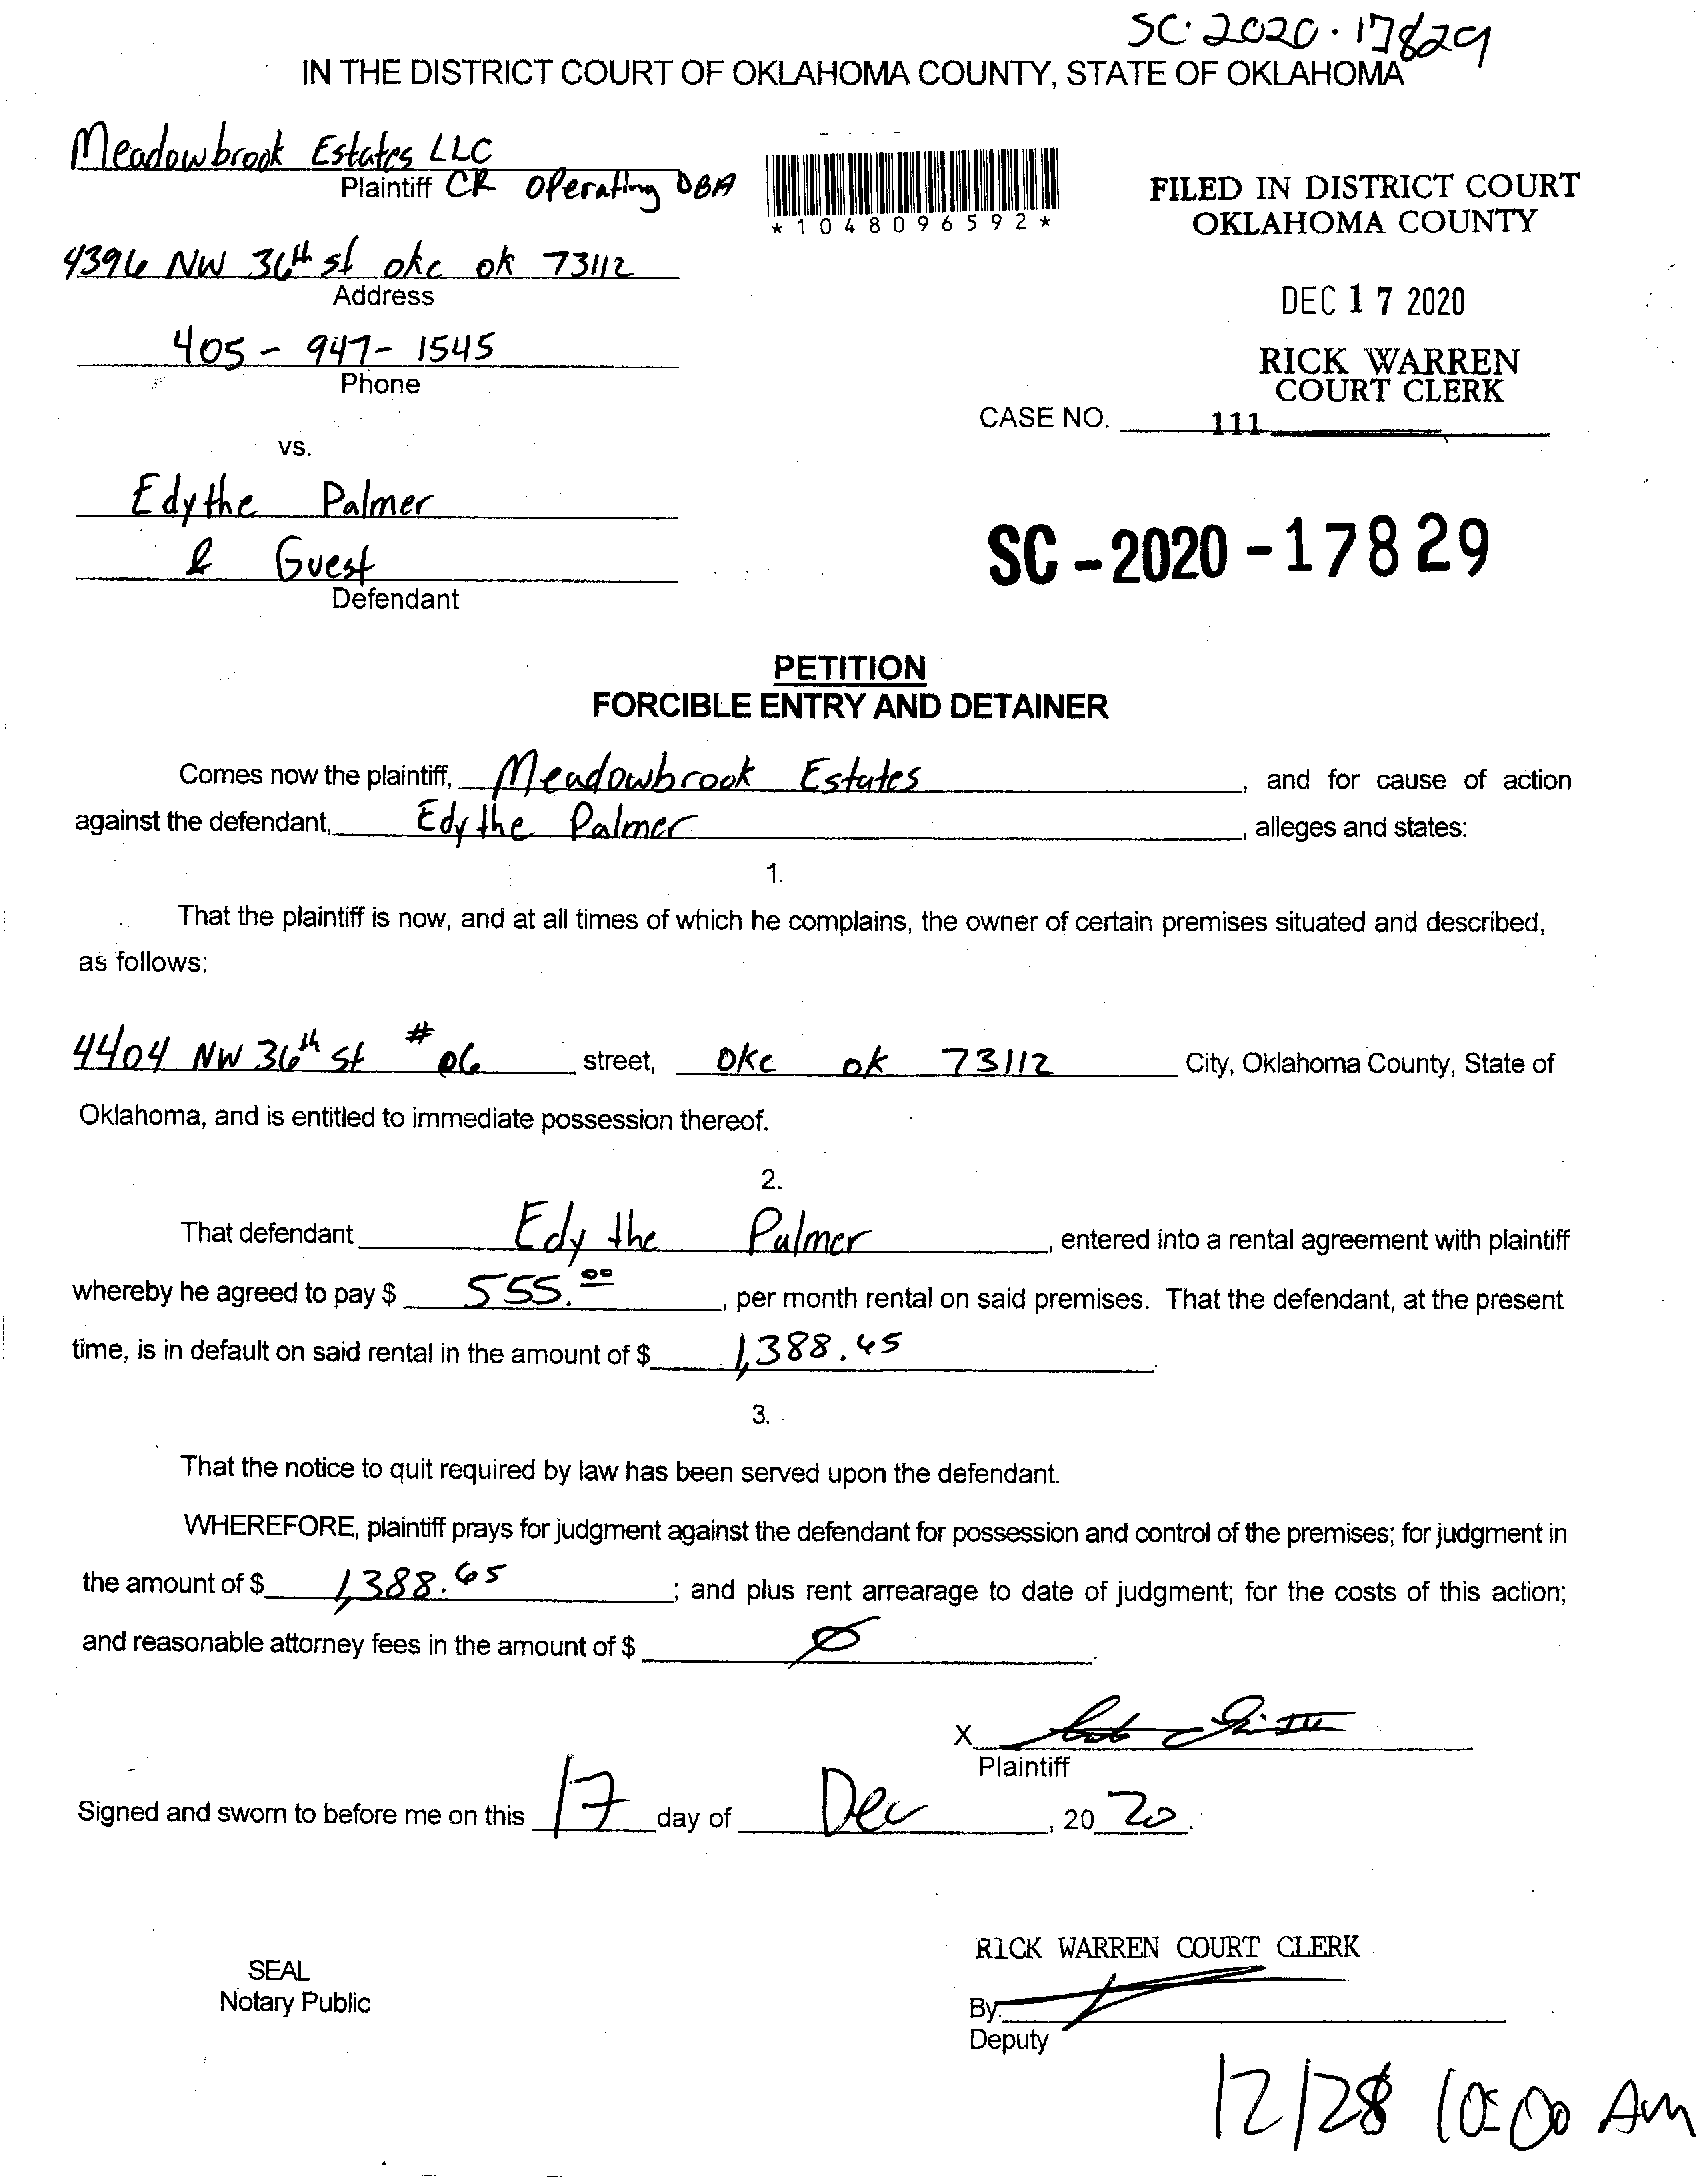 SC-2020-17829
IN THE DISTRICT COURT OF OKLAHOMA COUNTY, STATE OF OKLAHOMA
Meadowbrook Estates LLC
Plaintiff CR Operating DBA
*1048096592*
FILED IN DISTRICT COURT
OKLAHOMA COUNTY
4396 NW 36th st okc ok 73112
Address
DEC 17 2020
405-947-1545
Phone
RICK WARREN
COURT CLERK
CASE NO. 111
vs.
Edythe Palmer
& Guest
Defendant
SC-2020-17829
PETITION
FORCIBLE ENTRY AND DETAINER
Comes now the plaintiff, Meadowbrook Estates, and for cause of action
against the defendant, Edythe Palmer, alleges and states:
1.
That the plaintiff is now, and at all times of which he complains, the owner of certain premises situated and described,
as follows:
4404 NW 36th st #06 street, OKc ok 73112 City, Oklahoma County, State of
Oklahoma, and is entitled to immediate possession thereof.
2.
That defendant Edythe Palmer, entered into a rental agreement with plaintiff
whereby he agreed to pay $ 555.00, per month rental on said premises. That the defendant, at the present
time, is in default on said rental in the amount of $ 1,388.65.
3.
That the notice to quit required by law has been served upon the defendant.
WHEREFORE, plaintiff prays for judgment against the defendant for possession and control of the premises; for judgment in
the amount of $ 1,388.65; and plus rent arrearage to date of judgment; for the costs of this action;
and reasonable attorney fees in the amount of $ Ø.
X
Plaintiff
Signed and sworn to before me on this 17 day of Dec, 2020.
RICK WARREN COURT CLERK
SEAL
Notary Public
By:
Deputy
12/28 10:00 AM